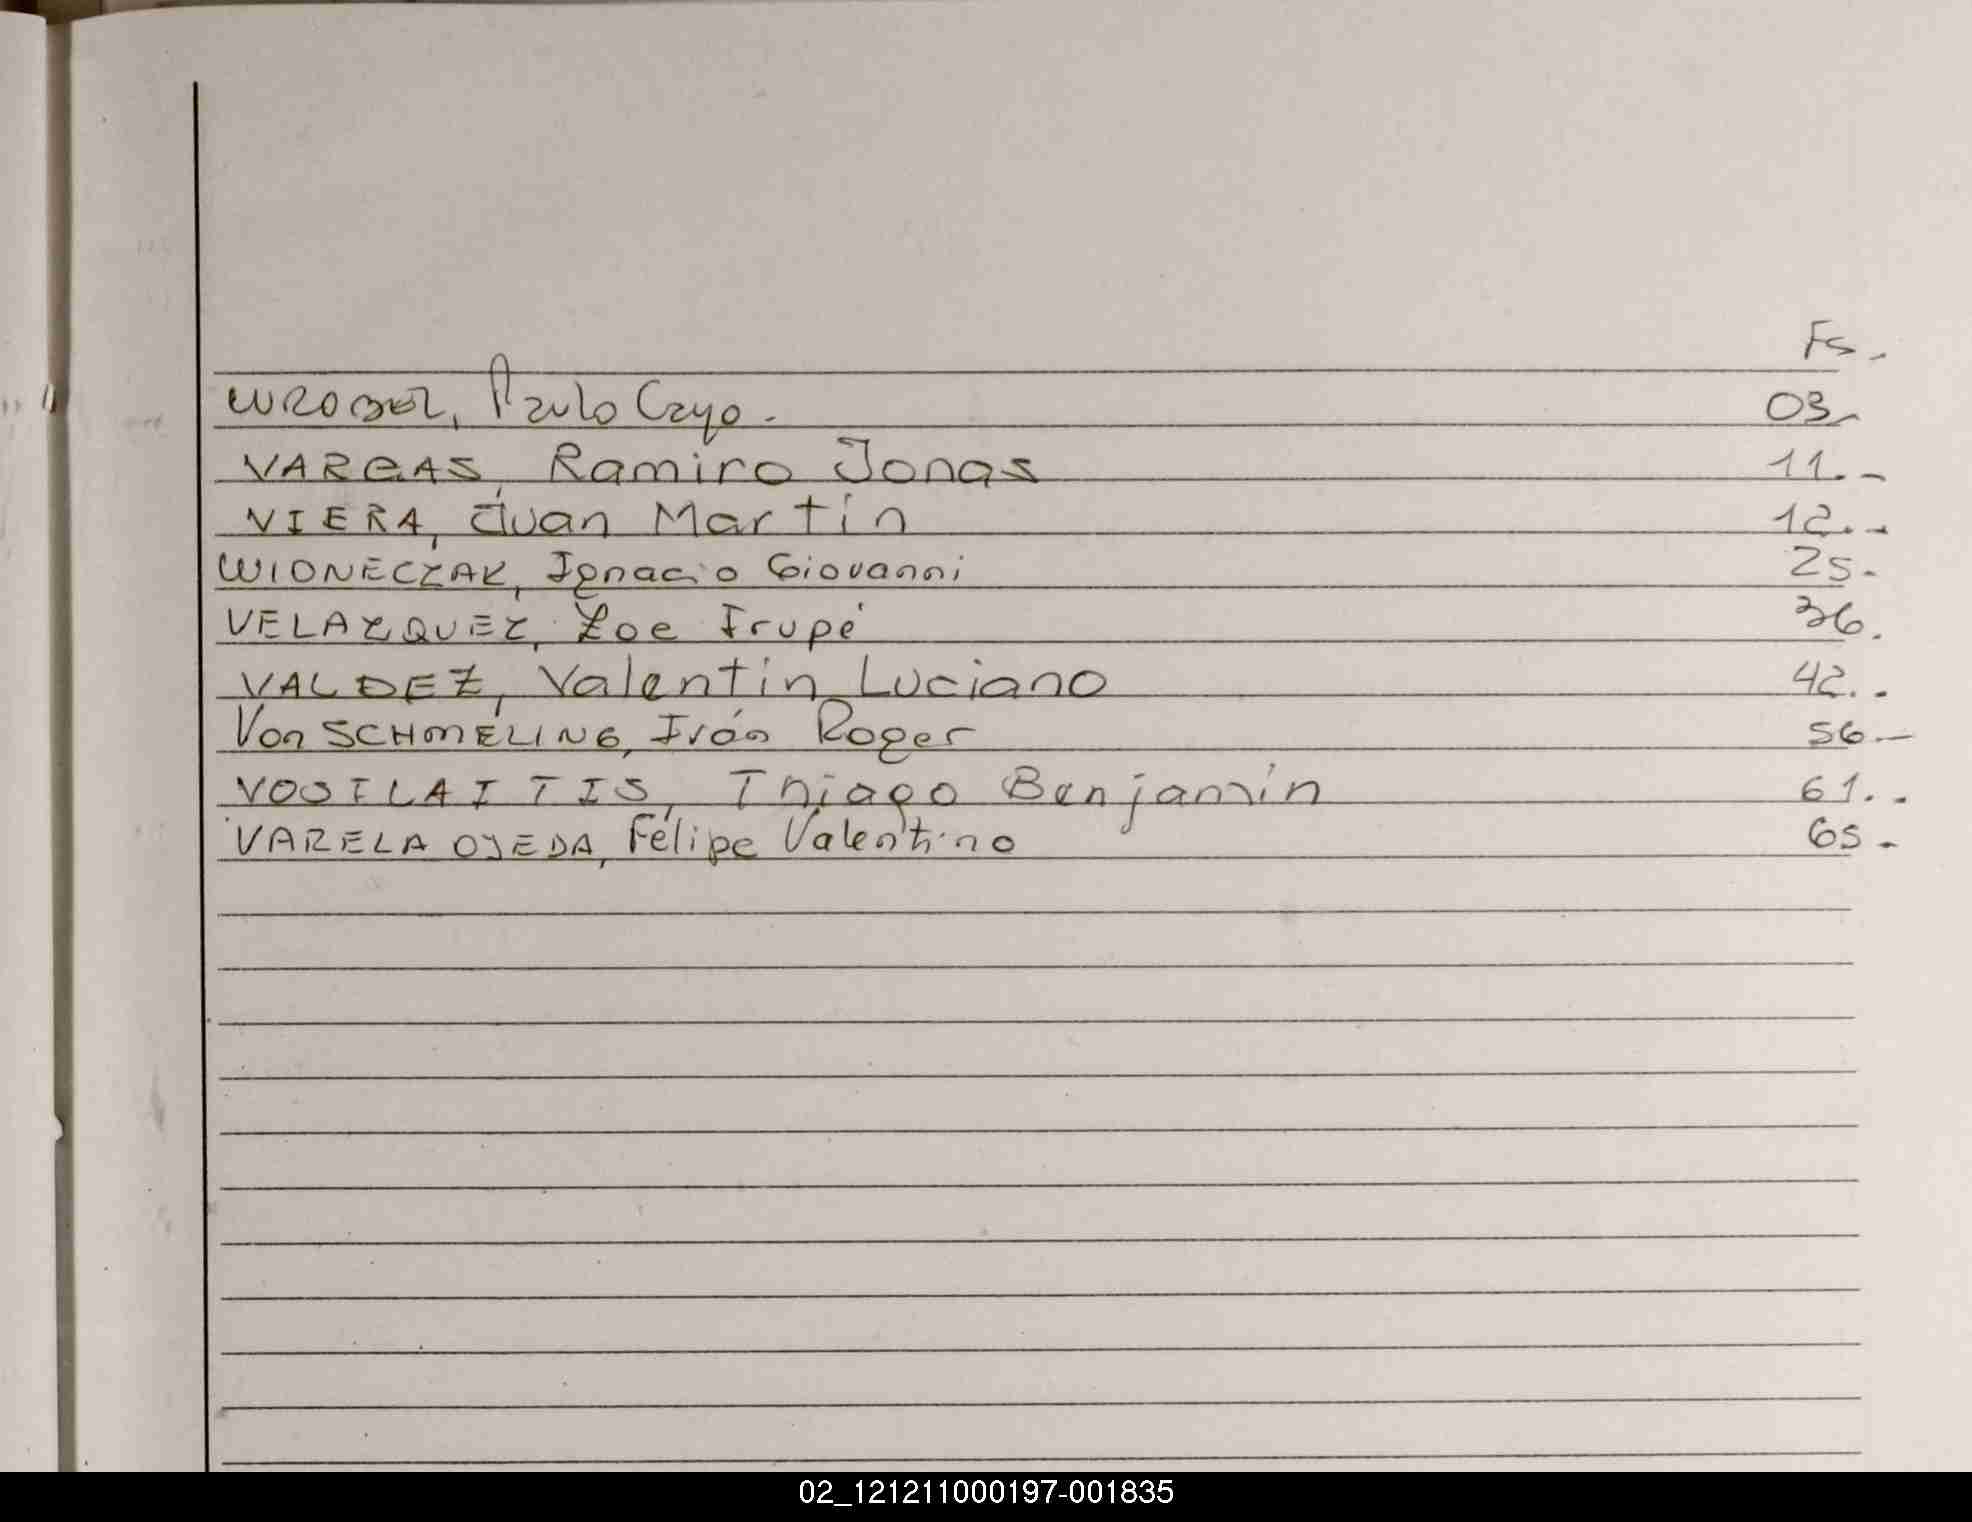 Fs.-
WROBEL, Paulo Cayo.- 03.-
VARGAS, Ramiro Jonas 11.-
VIERA, Juan Martín 12.-
WIONECZAK, Ignacio Giovanni 25.-
VELAZQUEZ, Zoe Irupé 36.
VALDEZ, Valentín Luciano 42.-
Von SCHMELING, Iván Roger 56.-
VOSILAITIS, Thiago Benjamín 61.-
VARELA OJEDA, Felipe Valentino 65.-
02_121211000197-001835